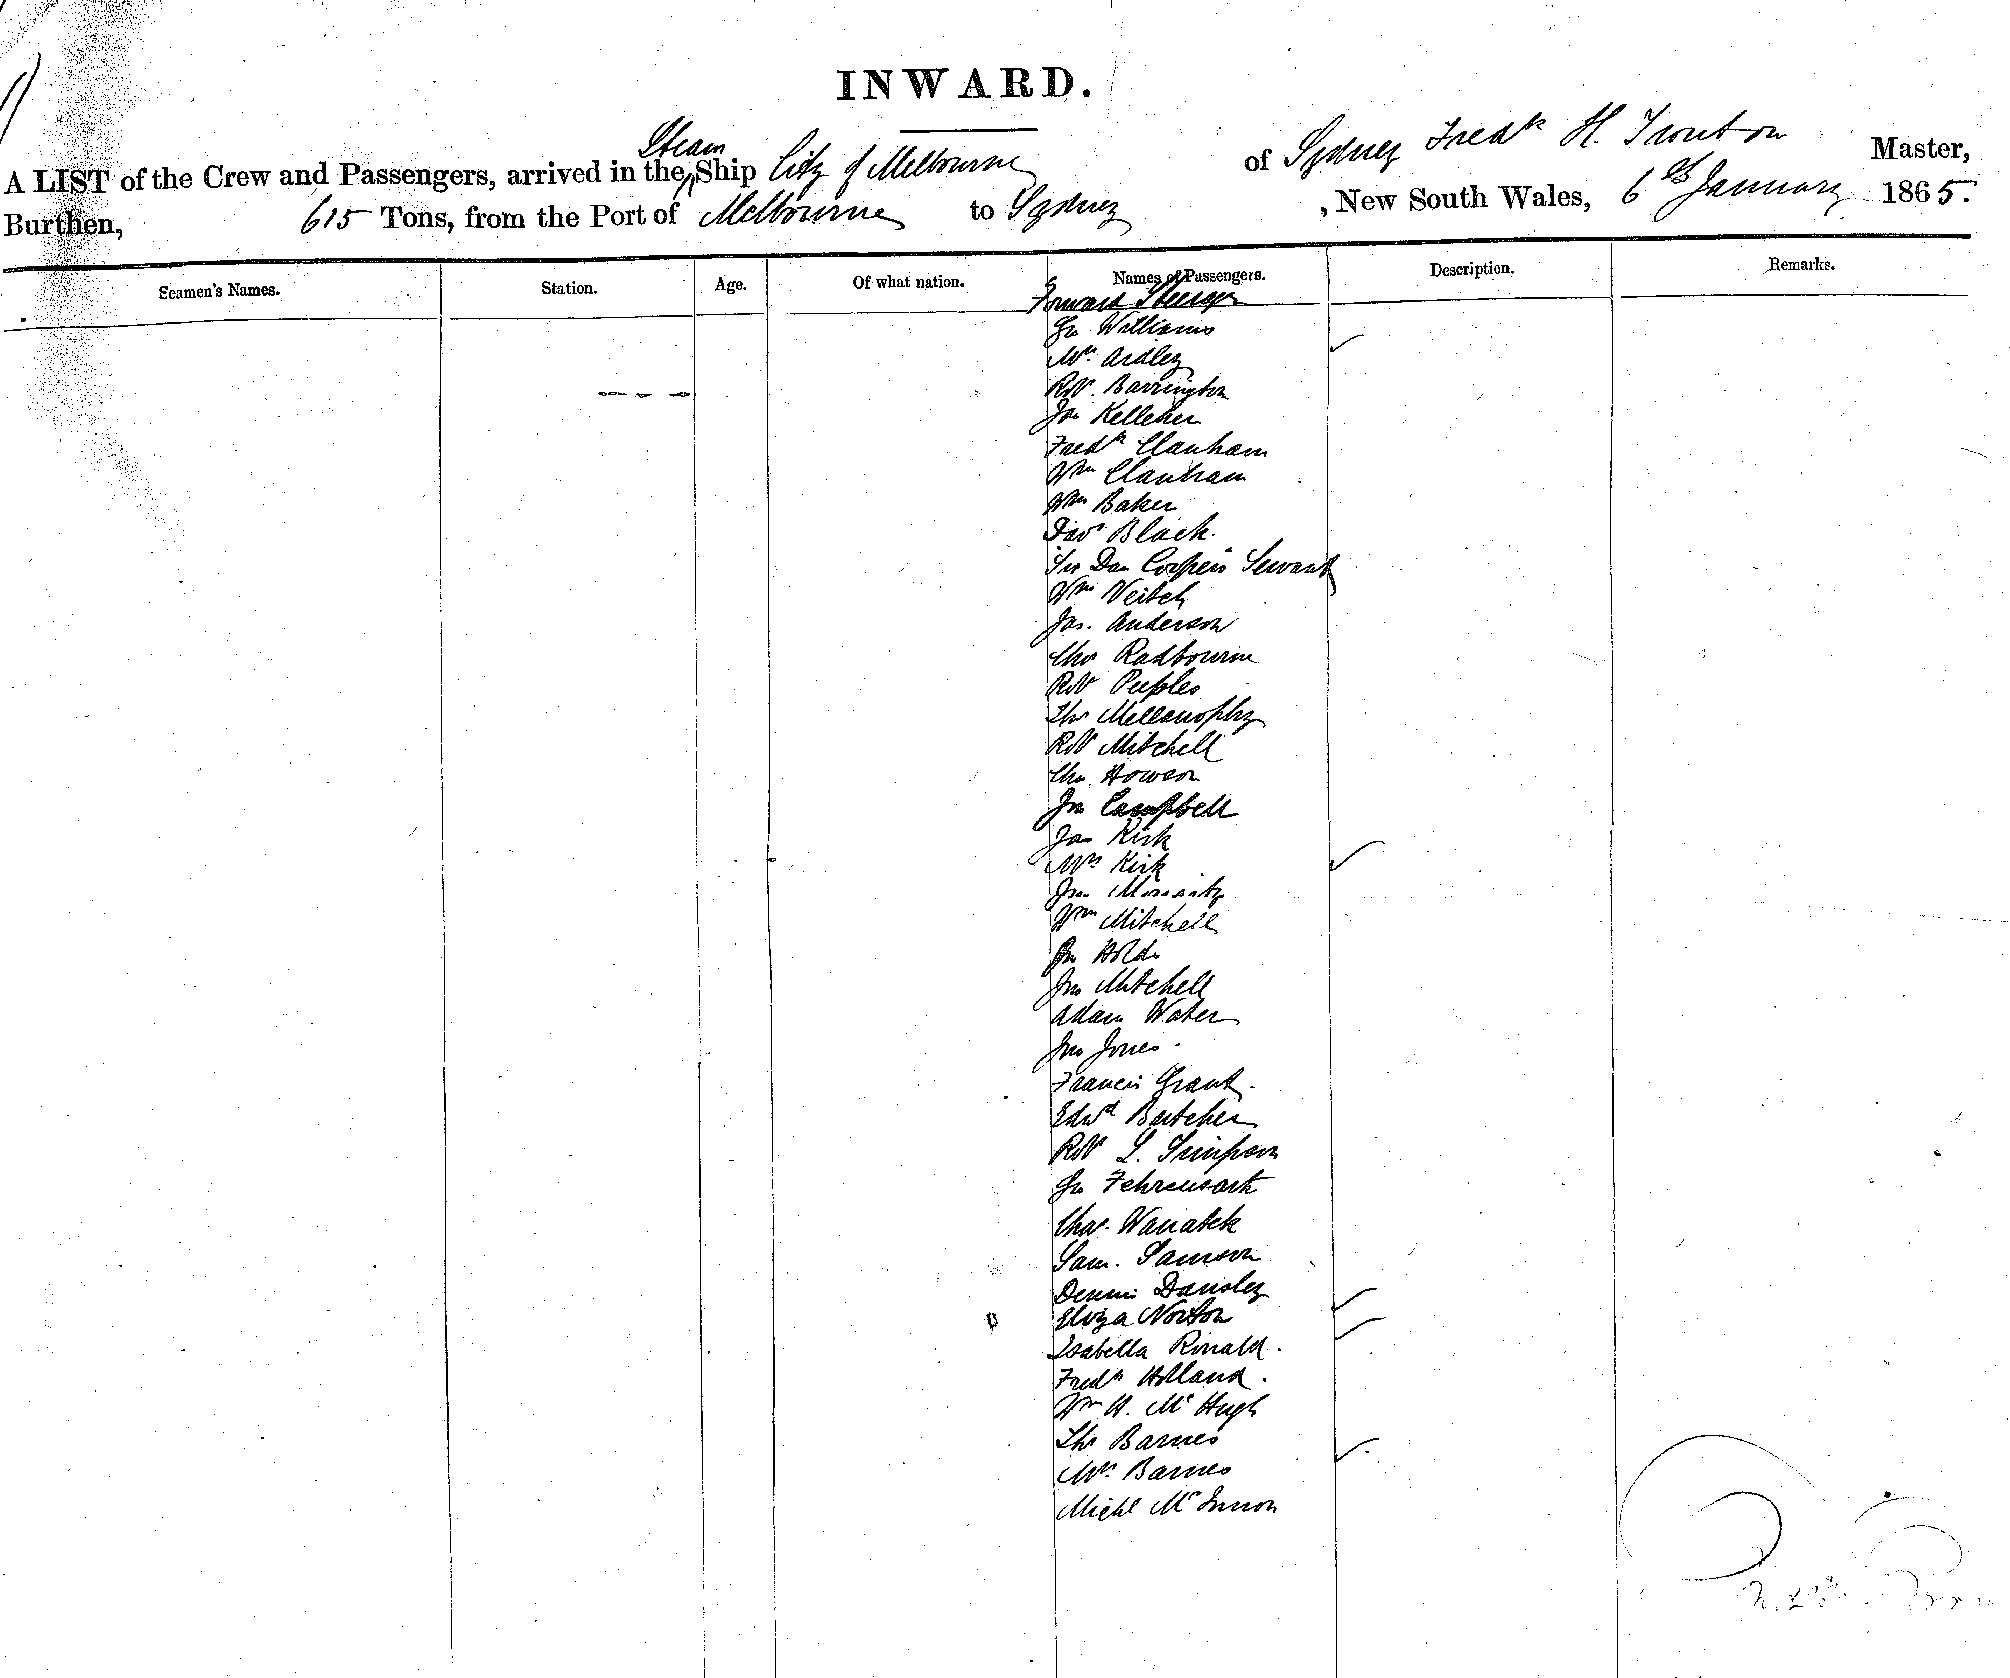 INWARD.
A LIST of the Crew and Passengers, arrived in the Steam Ship City of Melbourne of Sydney Fredk H. Trouton Master,
Burthen, 615 Tons, from the Port of Melbourne to Sydney, New South Wales, 6th January 1865.
Seamen's Names. Station. Age. Of what nation. Names of Passengers. Description. Remarks.
Forward Steerage
Jn Williams
Mrs Ardley
Robt Barrington
Jas Kelleher
Fredk Clanham
Wm Clanham
Wm Baker
Davd Black.
Sir Dan Cooper's Servant
Wm Veitch
Jas. Anderson
Chs Radbourne
Robt Peeples
Thos Mellanophy
Robt Mitchell
Chs Howson
Jno Campbell
Jas Kirk
Mrs Kirk
Jno Moriarty
Wm Mitchell
Jn Holds
Jno Mitchell
Adam Water
Jno Jones
Francis Grant.
Edwd Butcher
Robt L. Simpson
Jn
Chas. Wanatek
Sam. Samson
Dennis Dansley
Eliza Norton
Isabella Ronald.
Fredk Holland.
Wm H. McHugh
Thos Barnes
Mrs. Barnes
Michl